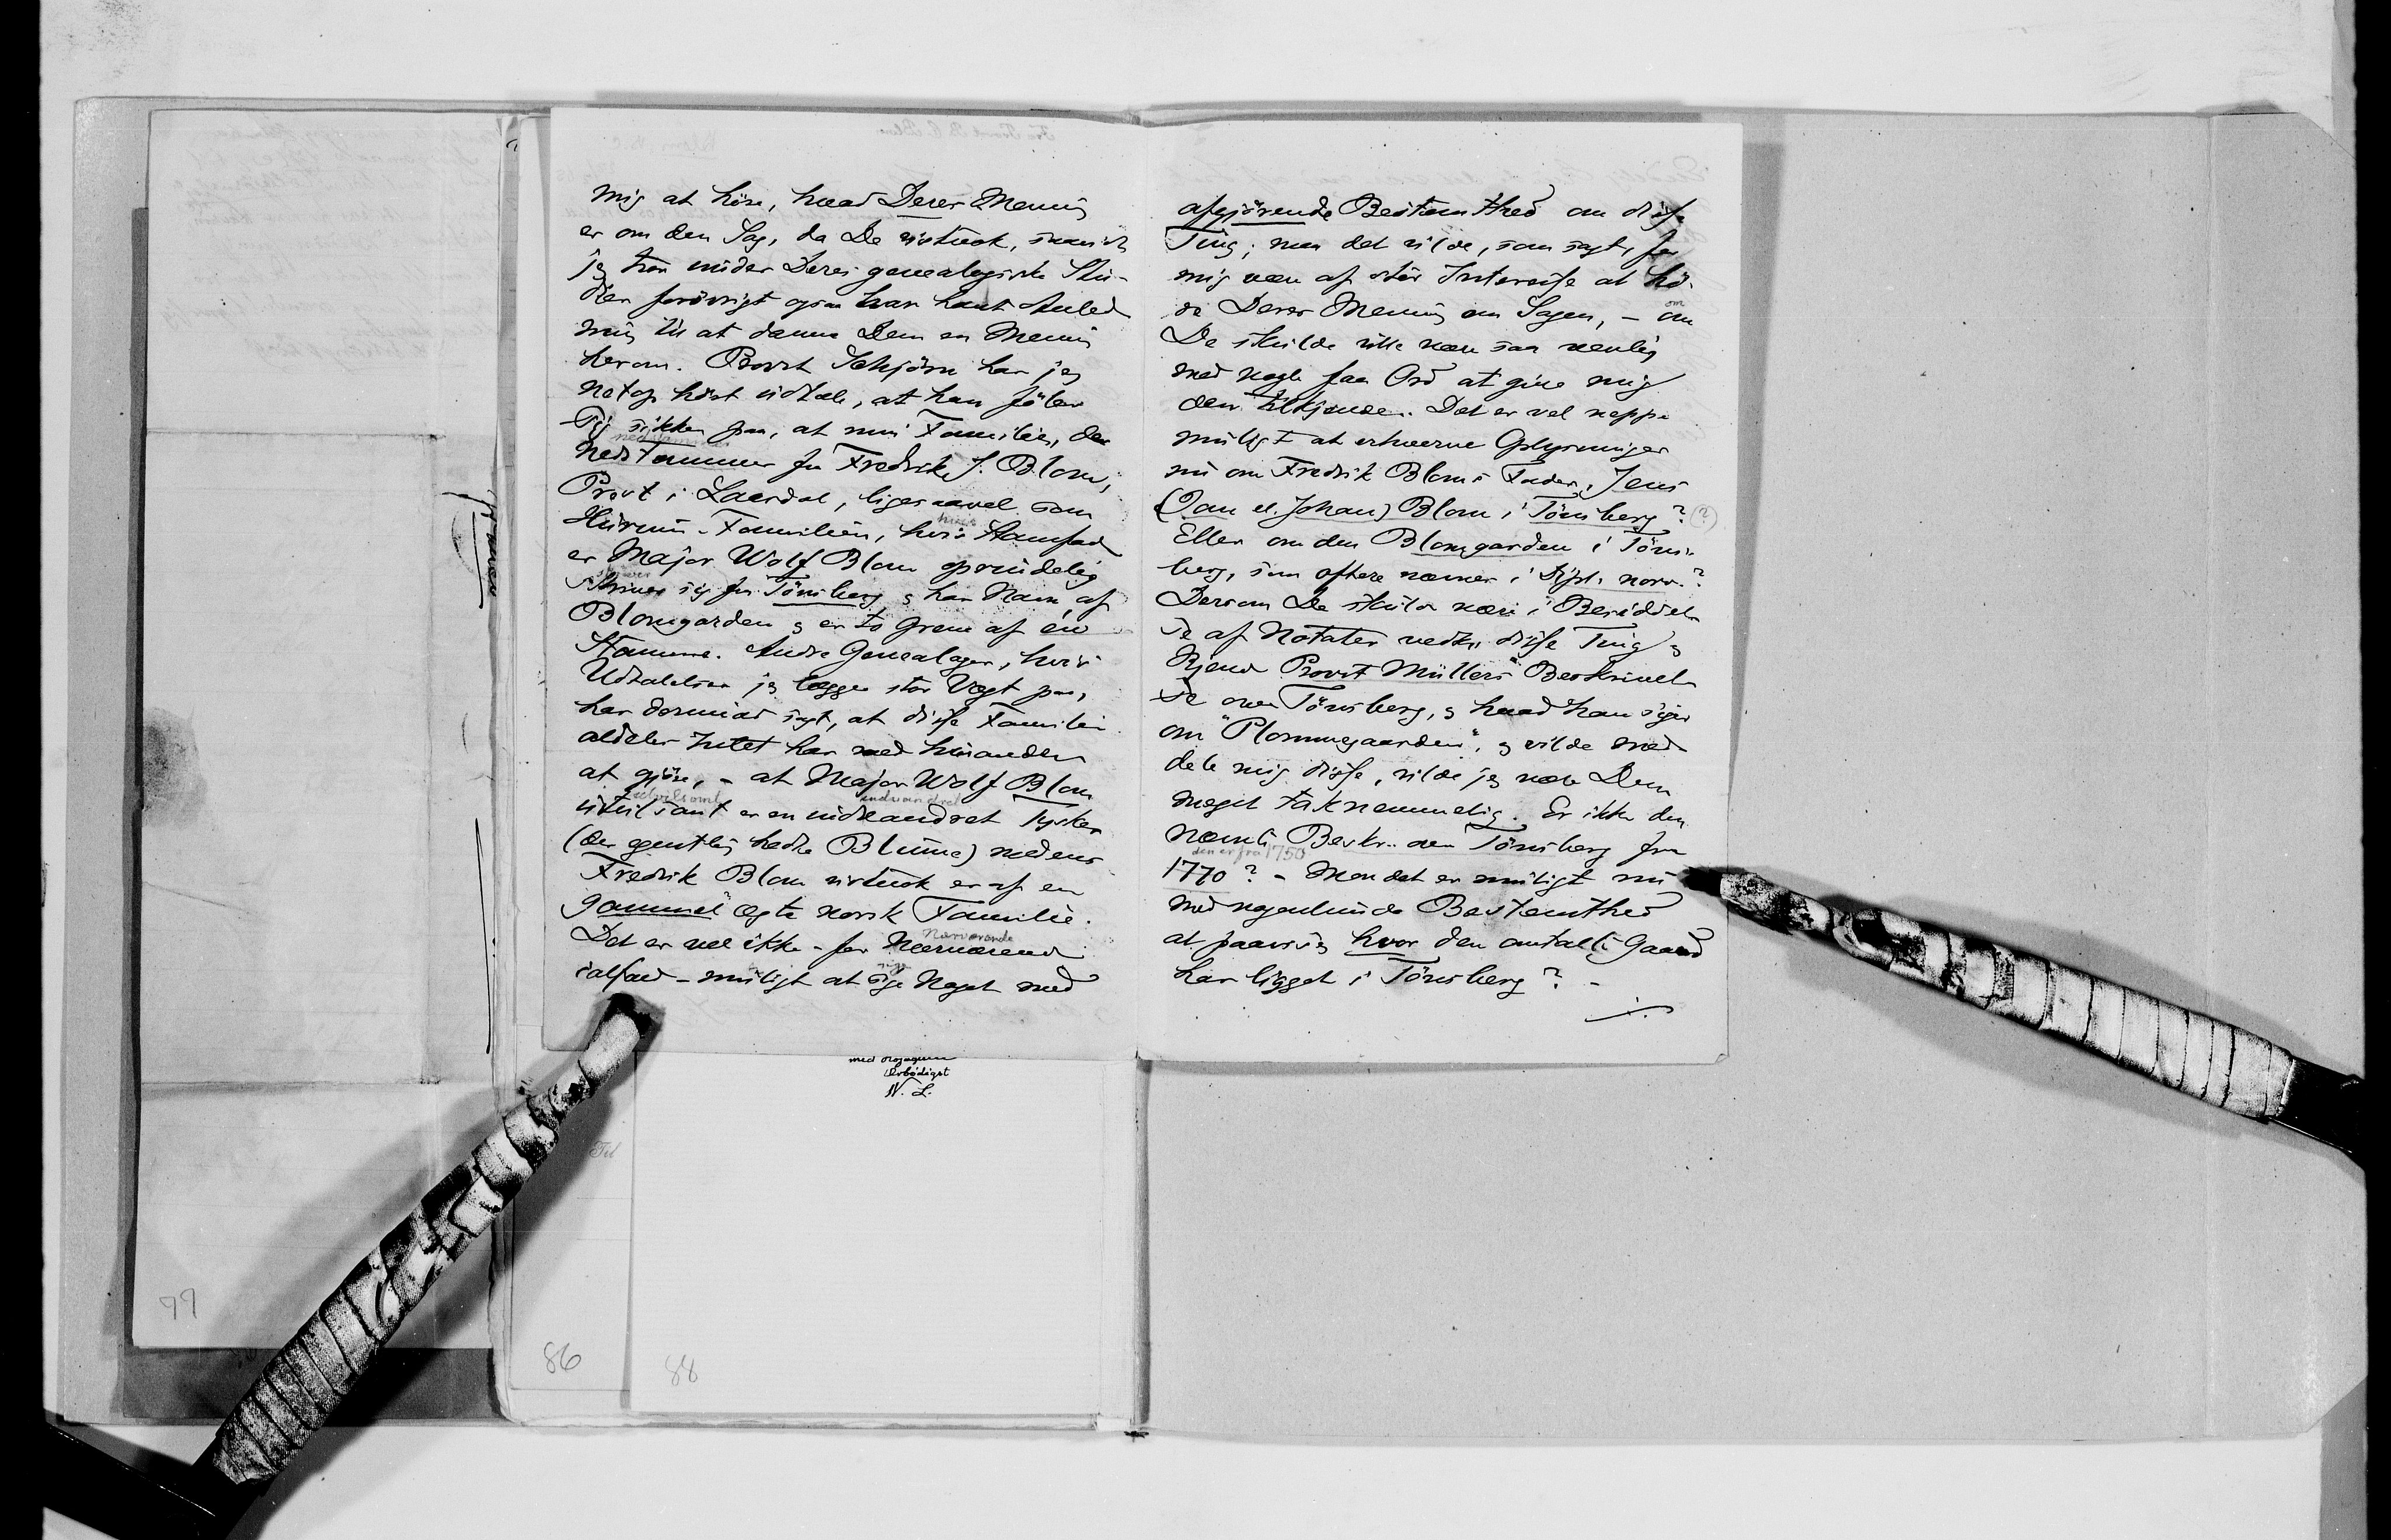 mig at höre, hvad Deres Mening
er om den Sag, da De vistnok, skønt
jeg tror under Deres genealogiske Stu-
dier forövrigt ogsaa har havt Anled
ning til at danne Dem en Mening
herom. Provst Schjörn har jeg
netop hört udtale, at han föler
sig sikker paa, at min Familie, der
nedstammer
nedstammer fra Fredrik J. Blom,
Provst i Laerdal, ligesaavel som
Hurum-Familien, hvis Stamfad
er Major Wolf Blom oprindelig
skriver
skriver sig fra Tönsberg & har Navn af
Blomgarden & er to Grene af én
Stamme. Andre Genealoger, hvis
Udtalelser jeg lægger stor Vægt paa,
har derimod sagt, at disse Familier
aldeles Intet har med hinanden
at gjöre, - at Major Wolf Blom
utvilsomt indvandret
utvilsomt er en indvandret Tysker
(der egentlig hedte Blume) medens
Fredrik Blom vistnok er af en
gammel ægte norsk Familie.
Nærværende
Det er vel ikke - for Nærværende
sige
ialfald - muligt at sige Noget med
afgjörende Bestemthed om disse
Ting; men det vilde, som sagt, for
mig være af stor Interesse at hö-
om
re Deres Mening om Sagen, - om
De skulde ville være saa venlig
med nogle faa Ord at give mig
den tilkjende. Det er vel neppe
muligt at erhverve Oplysninger
nu om Fredrik Bloms Fader, Jens
(Jan el. Johan) Blom i Tönsberg? (?)
Eller om den Blomgarden i Töns-
berg, som oftere nævnes i Dipl. norv.?
Dersom De skulde være i Besiddel
se af Notater vedk. disse Ting &
Kjend Provst Müllers Beskrivel
se over Tönsberg, & hvad han siger
om "Plommegaarden", & vilde med
dele mig disse, vilde jeg være Dem
meget taknemmelig. Er ikke den
nævnte Beskr. over Tönsberg fra
den er fra 1750
1770? - Mon det er muligt nu
med nogenlunde Bestemthed
at paavise hvor den omtalte Gaard
har ligget i Tönsberg? -
med
Erbödigst
N. L.
Til
99
86
88